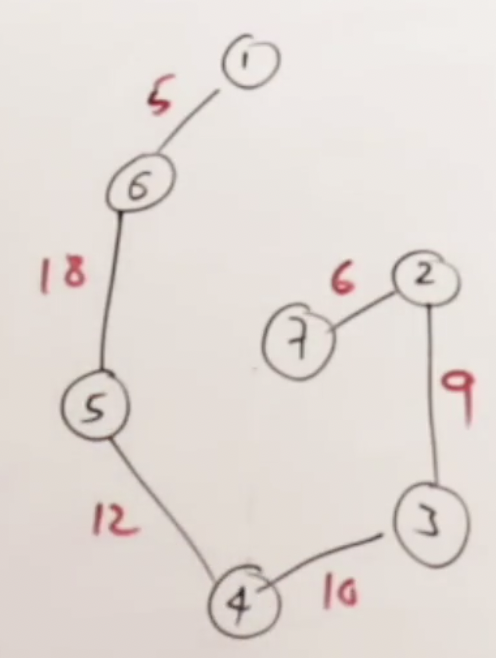 1
5
6
18
2
6
7
9
5
12
3
4
10